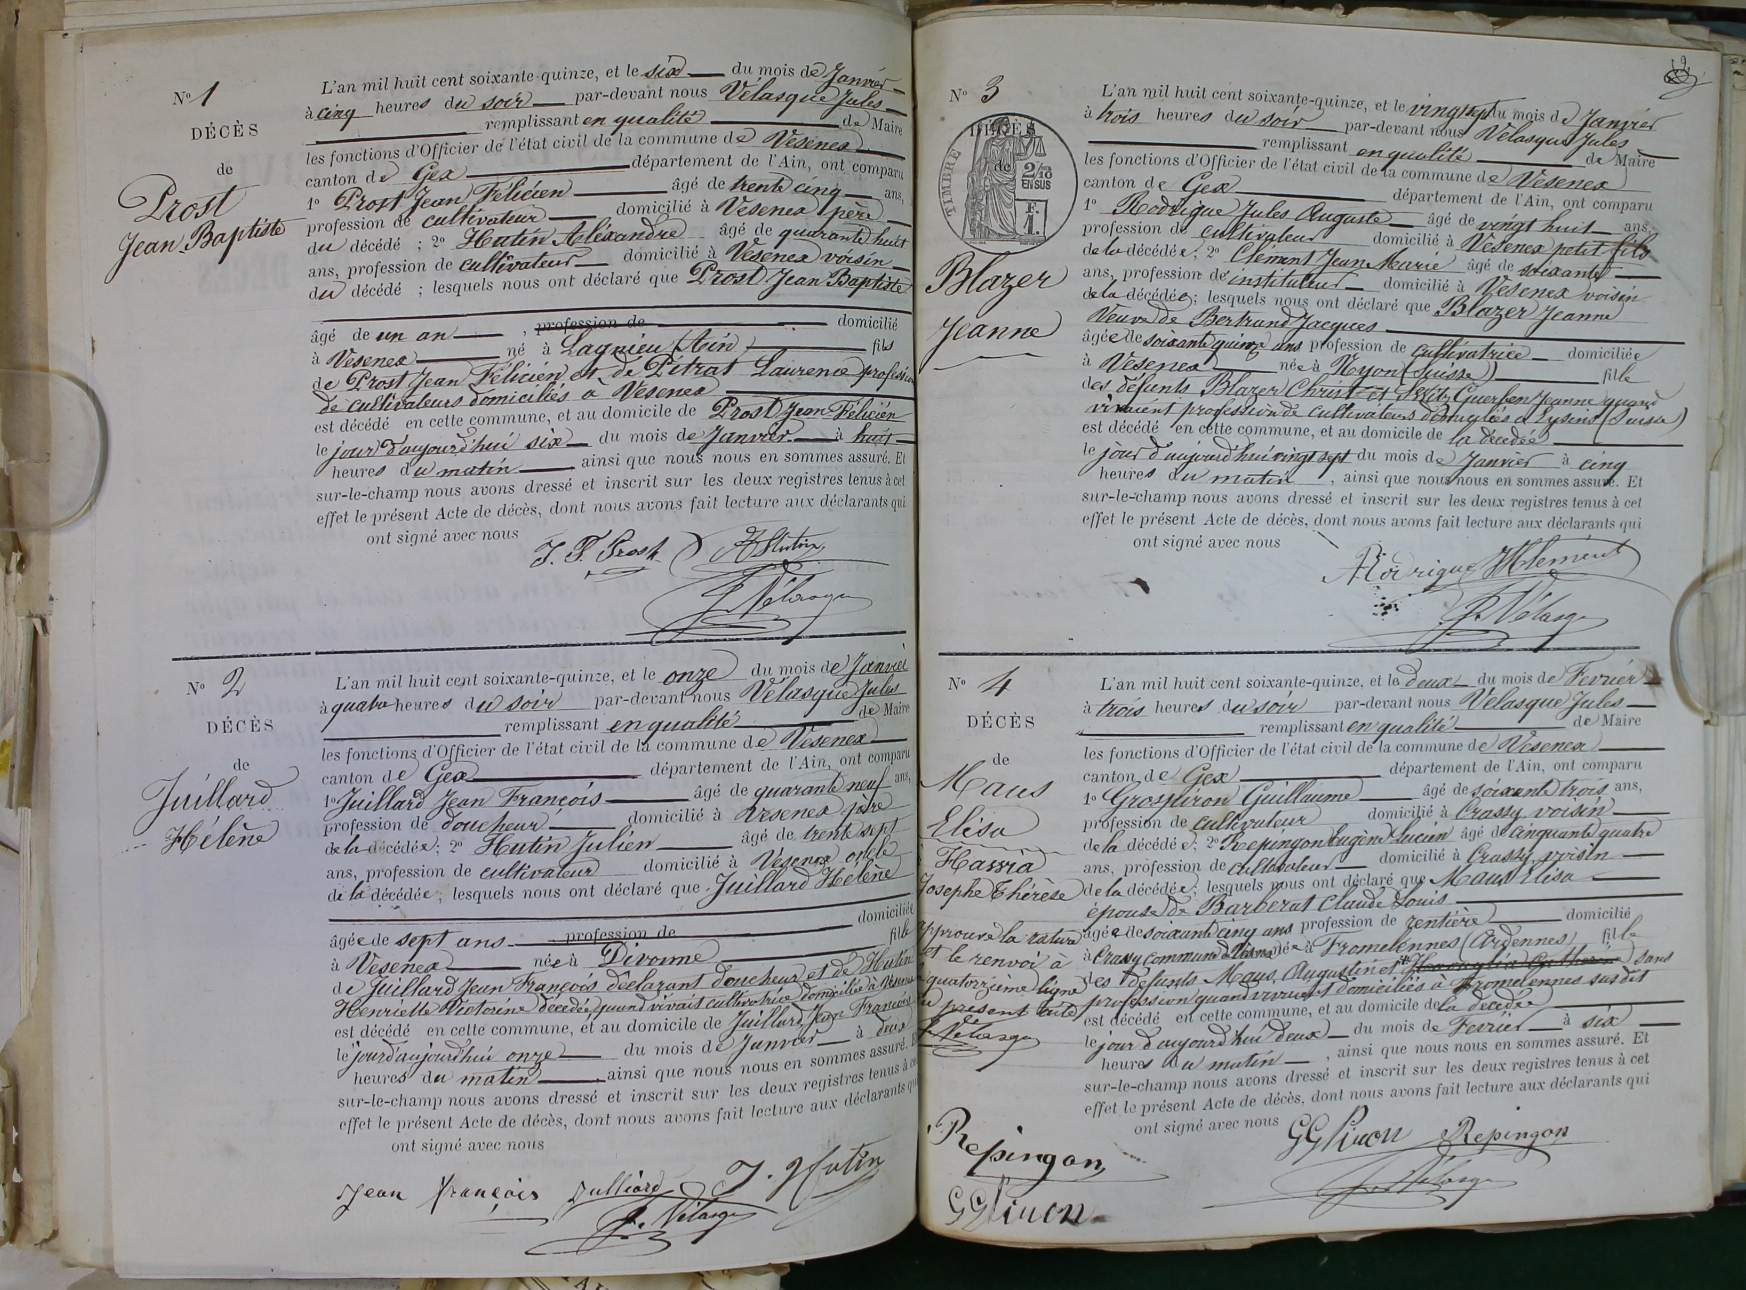 N° 1
DÉCÈS
de
Prost
Jean Baptiste
L'an mil huit cent soixante-quinze, et le six du mois de Janvier
à cinq heures du soir par-devant nous Vélasque Jules
remplissant en qualité de Maire
les fonctions d'Officier de l'état civil de la commune de Vesenex
canton de Gex département de l'Ain, ont comparu
1° Prost Jean Félicien âgé de trente cinq ans,
profession de cultivateur domicilié à Vesenex père
du décédé ; 2° Hutin Aléxandre âgé de quarante huit
ans, profession de cultivateur domicilié à Vesenex voisin
du décédé ; lesquels nous ont déclaré que Prost Jean Baptiste
âgé de un an , profession de domicilié
à Vesenex né à Lagnieu (Ain) fils
de Prost Jean Félicien et de Pitrat Laurence profession
de cultivateurs domiciliés à Vesenex
est décédé en cette commune, et au domicile de Prost Jean Félicien
le jour d'aujourd'hui six du mois de Janvier à huit
heures du matin ainsi que nous nous en sommes assuré. Et
sur-le-champ nous avons dressé et inscrit sur les deux registres tenus à cet
effet le présent Acte de décès, dont nous avons fait lecture aux déclarants qui
ont signé avec nous
J. F. Prost Hutin
J. Vélasque
N° 2
DÉCÈS
de
Juillard
Hélène
L'an mil huit cent soixante-quinze, et le onze du mois de Janvier
à quatre heures du soir par-devant nous Vélasque Jules
remplissant en qualité de Maire
les fonctions d'Officier de l'état civil de la commune de Vesenex
canton de Gex département de l'Ain, ont comparu
1° Juillard Jean François âgé de quarante neuf ans,
profession de doucheur domicilié à Vesenex père
de la décédée ; 2° Hutin Julien âgé de trente sept
ans, profession de cultivateur domicilié à Vesenex oncle
de la décédée ; lesquels nous ont déclaré que Juillard Hélène
âgée de sept ans profession de domiciliée
à Vesenex née à Divonne fille
de Juillard Jean François déclarant doucheur et de Hutin
Henriette Victorine décédée quand vivait cultivatrice domiciliée à Vesenex
est décédé en cette commune, et au domicile de Juillard Jean François
le jour d'aujourd'hui onze du mois de Janvier à deux
heures du matin ainsi que nous nous en sommes assuré.
sur-le-champ nous avons dressé et inscrit sur les deux registres tenus à
effet le présent Acte de décès, dont nous avons fait lecture aux déclarants
ont signé avec nous
Jean françois Julliard J. Hutin
J. Vélasque
N° 3
DÉCÈS
de
TIMBRE
2/10
EN SUS
F.
1.
Blazer
Jeanne
L'an mil huit cent soixante-quinze, et le vingt sept du mois de Janvier
à trois heures du soir par-devant nous Vélasque Jules
remplissant en qualité de Maire
les fonctions d'Officier de l'état civil de la commune de Vesenex
canton de Gex département de l'Ain, ont comparu
1° Rodrigue Jules Auguste âgé de vingt huit ans,
profession de cultivateur domicilié à Vesenex petit fils
de la décédée ; 2° Clément Jean Marie âgé de soixante
ans, profession de instituteur domicilié à Vesenex voisin
de la décédée ; lesquels nous ont déclaré que Blazer Jeanne
Veuve de Bertrand Jacques
âgée de soixante quinze ans profession de cultivatrice domiciliée
à Vesenex née à Nyon (Suisse) fille
des défunts Blazer Christ et Jeanne quand
vivaient profession de cultivateurs domiciliés à Eysins (Suisse)
est décédé en cette commune, et au domicile de la décédée
le jour d'aujourd'hui vingt sept du mois de Janvier à cinq
heures du matin , ainsi que nous nous en sommes assuré. Et
sur-le-champ nous avons dressé et inscrit sur les deux registres tenus à cet
effet le présent Acte de décès, dont nous avons fait lecture aux déclarants qui
ont signé avec nous
Rodrigue Clément
J. Vélasque
N° 4
DÉCÈS
de
Maus
Elisa
Josephe Thérèse
approuvé la rature
et le renvoi à
quatorzième ligne
du présent acte
J. Vélasque
L'an mil huit cent soixante-quinze, et le deux du mois de Février
à trois heures du soir par-devant nous Vélasque Jules
remplissant en qualité de Maire
les fonctions d'Officier de l'état civil de la commune de Vesenex
canton de Gex département de l'Ain, ont comparu
1° Grospiron Guillaume âgé de soixante trois ans,
profession de cultivateur domicilié à Crassy voisin
de la décédée ; 2° Repingon Eugène Lucien âgé de cinquante quatre
ans, profession de cultivateur domicilié à Crassy voisin
de la décédée ; lesquels nous ont déclaré que Maus Elisa
épouse de Barberat Claude Louis
âgée de soixante cinq ans profession de rentière domicilié
à Crassy commune née à Fromelennes (Ardennes) fille
des défunts Maus Augustin et sans
profession quand vivaient domiciliés à Fromelennes susdit
est décédé en cette commune, et au domicile de la décédée
le jour d'aujourd'hui deux du mois de Février à six
heures du matin , ainsi que nous nous en sommes assuré. Et
sur-le-champ nous avons dressé et inscrit sur les deux registres tenus à cet
effet le présent Acte de décès, dont nous avons fait lecture aux déclarants qui
ont signé avec nous
GGpiron Repingon
J. Vélasque
Repingon
GGpiron